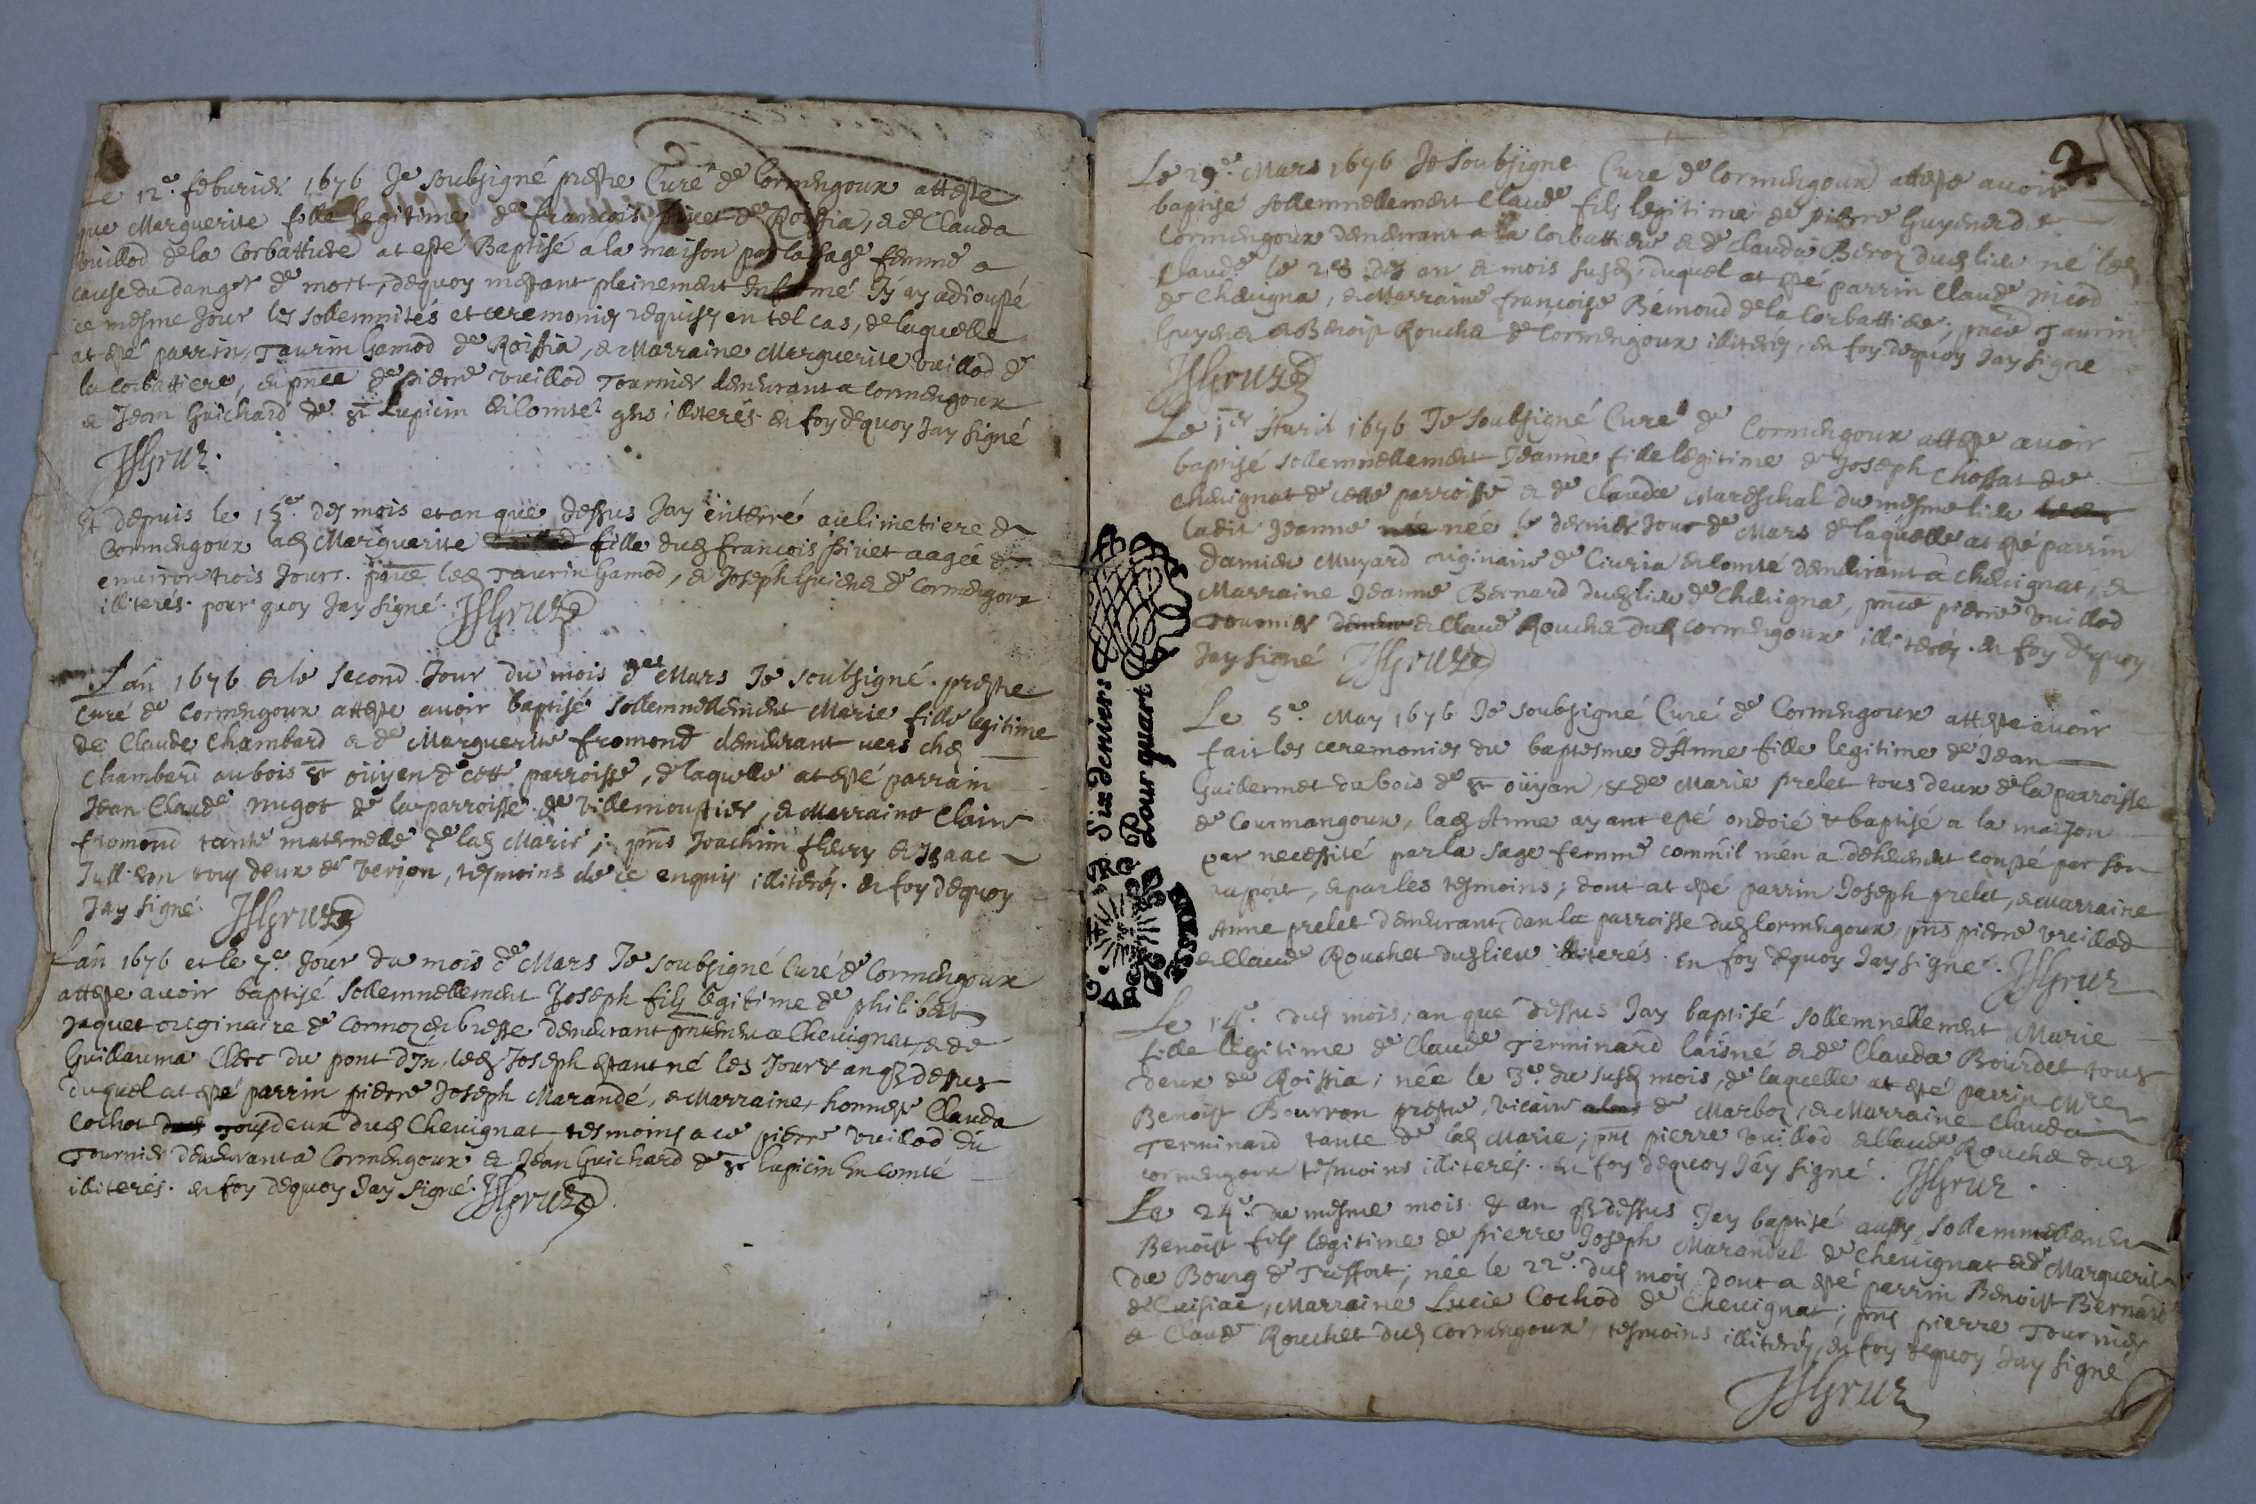 Le 12e. feburier 1676 Je soubsigné prestre Curé de Cormengoux atteste
que Marguerite fille legitime de francois pivet de Roissia, & de Clauda
vuillod de la Corbattiere at esté Baptisé a la maison par la sage femme a
cause du danger de mort, dequoy mestant pleinement informé Jy ay adiousté
ce mesme Jour les sollemnités et ceremonies requises en tel cas, de laquelle
at esté parrin, Taurin Gamod de Roissia, & Marraine Marguerite vuillod de
la Corbattiere, en pnce de pierre vuillod Tournier demeurant a Cormengoux
& Jean Guichard de St Lupicin en Comté illiterés. en foy dequoy Jay signé
Et depuis le 15e. des mois et an que dessus Jay enterré au Cimetiere de
Cormengoux lad Marguerite fille dud francois pivet aagée de
environ trois Jours. pnce led Taurin Gamod, & Joseph Guiene de Cormengoux
illiterés. pour quoy Jay signé.
Lán 1676 & le second Jour du mois de Mars Je soubsigné. prestre
Curé de Cormengoux atteste avoir baptisé sollemnellement Marie fille legitime
de Claude Chambard & de Marguerite fromond demeurant vers chez
Chambard au bois St oüyen de cette parroisse, de laquelle at esté parrain
Jean Claude nugot de la parroisse de villemoustier, & Marraine Claire
fromond tante maternelle de lad Marie; pns Joachim fleury & Isaac
Jullieron tous deux de verjon, tesmoins de ce enquis illiterés. en foy dequoy
Jay signé.
Lán 1676 et le 7e. Jour du mois de Mars Je soubsigné Curé de Cormengoux
atteste avoir baptisé sollemnellement Joseph fils legitime de philibert
Jaquet originaire de Cormoz en bresse demeurant a Chevignat, & de
Guillauma Clerc du pont dIn, led Joseph estant né les Jour & an q dessus
duquel at esté parrin pierre Joseph Marandé, & Marraine, honneste Clauda
Cochot tous deux dud Chevignat, tesmoins a ce pierre vuillod du
Tournier demeurant a Cormengoux & Jean Guichard de St lupicin En Comté
illiterés. en foy dequoy Jay signé.
2
Le 29e. Mars 1676 Je soubsigne Curé de Cormengoux atteste avoir
baptise sollemnellement Claude fils legitime de pierre Guyenerd de
Cormengoux demeurant a la Corbattiere & de Clauda Beroz dud lieu né led
Claude le 28 des an & mois susd, duquel at esté parrin Claude nicod
de Chevigna, & Marraine francoise Bémond de la Corbattiere; pnce Taurin
Guyene & Benoist Rouche de Cormengoux illiterés, en foy dequoy Jay signe
Le 1er Auril 1676 Je soubsigné Curé de Cormengoux atteste avoir
baptisé sollemnellement Jeanne fille legitime de Joseph Chossat de
Chevignat de cette parroisse & de Clauda Mareschal du mesme lieu
ladit Jeanne née le dernier Jour de Mars de laquelle at esté parrin
Damien Muyard originaire de Civria en Comté demeurant a Chevignat, &
Marraine Jeanne Bernard dud lieu de Chevigna, pnce pierre vuillod
Tournier & Claude Rouche dud Cormengoux illiterés. en foy dequoy
Jay signé
Le 5e. May 1676 Je soubsigné Curé de Cormengoux atteste avoir
fait les ceremonies du baptesme d'Anne fille legitime de Jean
Guillermet du bois de St oüyan, & de Marie prelet tous deux de la parroisse
de Courmangoux, lad Anne ayant esté ondoié & baptisé a la maison
par necessité par la sage femme comm'il m'en a deheument consté par son
raport, & par les tesmoins; dont at esté parrin Joseph prelet, & Marraine
Anne prelet demeurant dan la parroisse dud Cormengoux, pns pierre vuillod
& Claude Rouchet dud lieu illiterés. en foy dequoy Jay signé.
Le 14e. dud mois, an que dessus Jay baptisé sollemnellement Marie
fille legitime de Claude Terminard laisné & de Clauda Bourdet tous
deux de Roissia; née le 3e. du susd mois, de laquelle at esté parrin Mre
Benoist Bourron prestre, vicaire de Marboz, & Marraine Clauda
Terminard tante de lad Marie; pnt pierre vuillod & Claude Rouche dud
Cormengoux tesmoins illiterés. en foy dequoy Jay signé.
Le 24e. du mesme mois & an q dessus Jay baptisé aussy sollemnellement
Benoist fils legitime de pierre Joseph Marandel de Chevignat & de Marguerite
du Bourg de Treffort; née le 22e. dud mois dont a esté parrin Benoist Bernard
de Cuisiat, Marraine Lucie Cochod de Chevignat; pnt pierre Tournier
& Claude Rouchet dud Cormengoux, tesmoins illiterés, en foy dequoy Jay signé
Six deniers
Pour quart
BRESSE